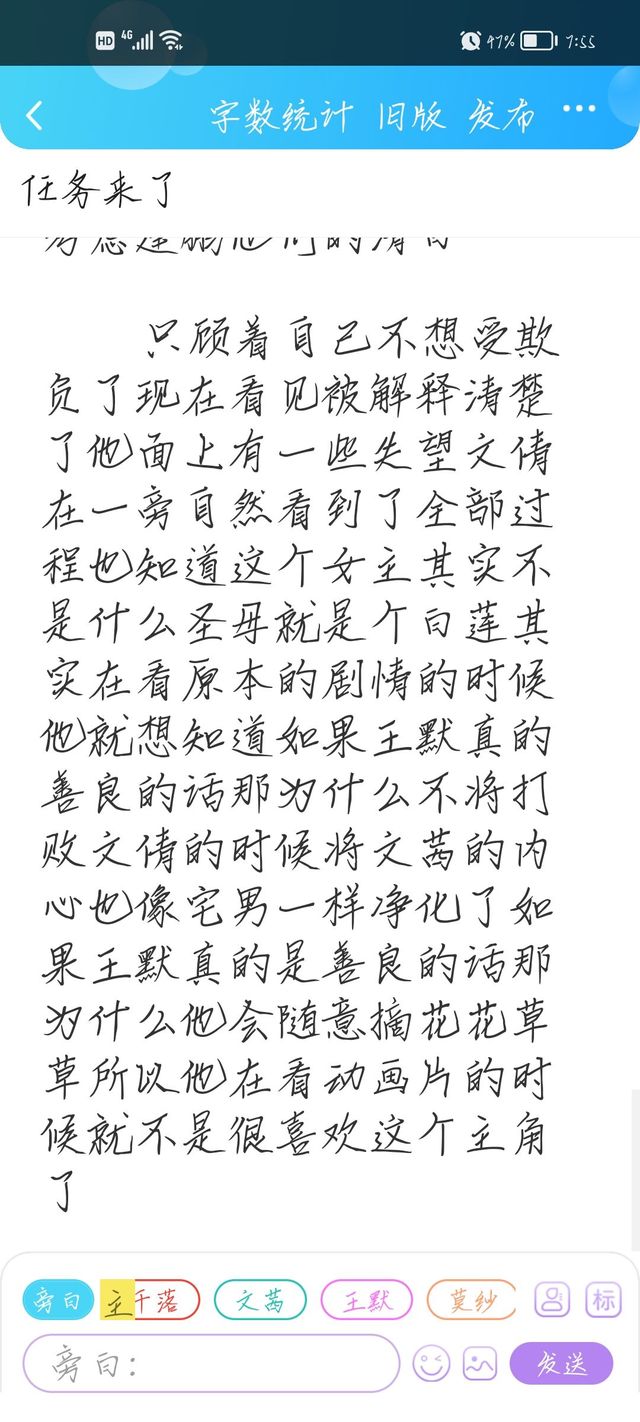 HD 4G 47% 7:55
字数统计 旧版 发布
任务来了
只顾着自己不想受欺
负了现在看见被解释清楚
了他面上有一些失望文倩
在一旁自然看到了全部过
程也知道这个女主其实不
是什么圣母就是个白莲其
实在看原本的剧情的时候
他就想知道如果王默真的
善良的话那为什么不将打
败文倩的时候将文茜的内
心也像宅男一样净化了如
果王默真的是善良的话那
为什么他会随意摘花花草
草所以他在看动画片的时
候就不是很喜欢这个主角
了
旁白 主 千落 文茜 王默 莫纱 标
旁白： 发送